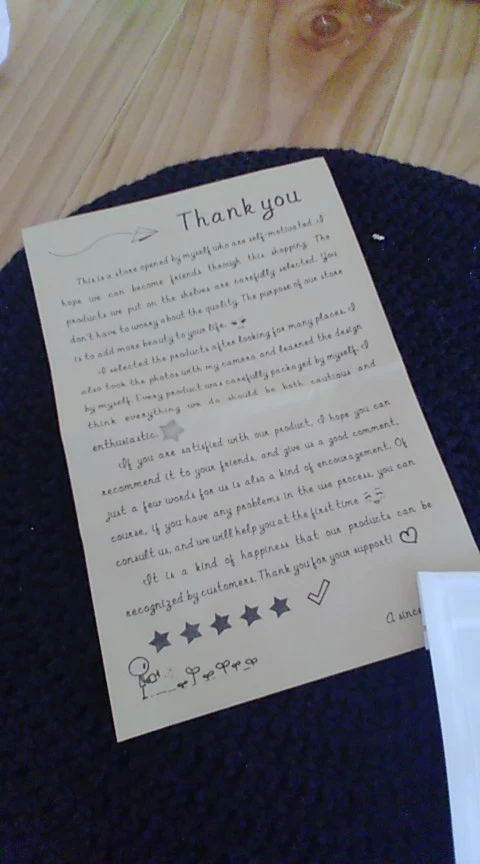 Thank you
This is a store opened by myself who are self-motivated. I
hope we can become friends through this shopping. The
products we put on the shelves are carefully selected. You
don't have to worry about the quality. The purpose of our store
is to add more beauty to your life.
I selected the products after looking for many places. I
also took the photos with my camera and learned the design
by myself. Every product was carefully packaged by myself. I
think everything we do should be both cautious and
enthusiastic.
If you are satisfied with our product, I hope you can
recommend it to your friends, and give us a good comment,
just a few words for us is also a kind of encouragement. Of
course, if you have any problems in the use process, you can
consult us, and we will help you at the first time
It is a kind of happiness that our products can be
recognized by customers. Thank you for your support!
A